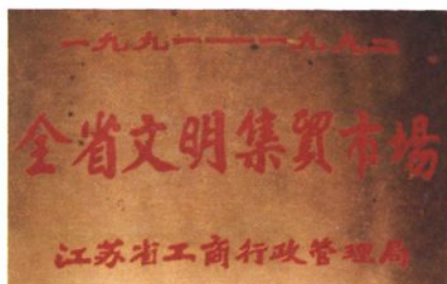 一九九一——一九九二
全省文明集贸市場
江苏省工商行政管理局